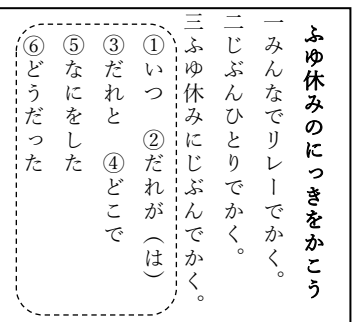 ふゆ休みのにっきをかこう
一みんなでリレーでかく。
二じぶんひとりでかく。
三ふゆ休みにじぶんでかく。
①いつ　②だれが（は）
③だれと　④どこで
⑤なにをした
⑥どうだった